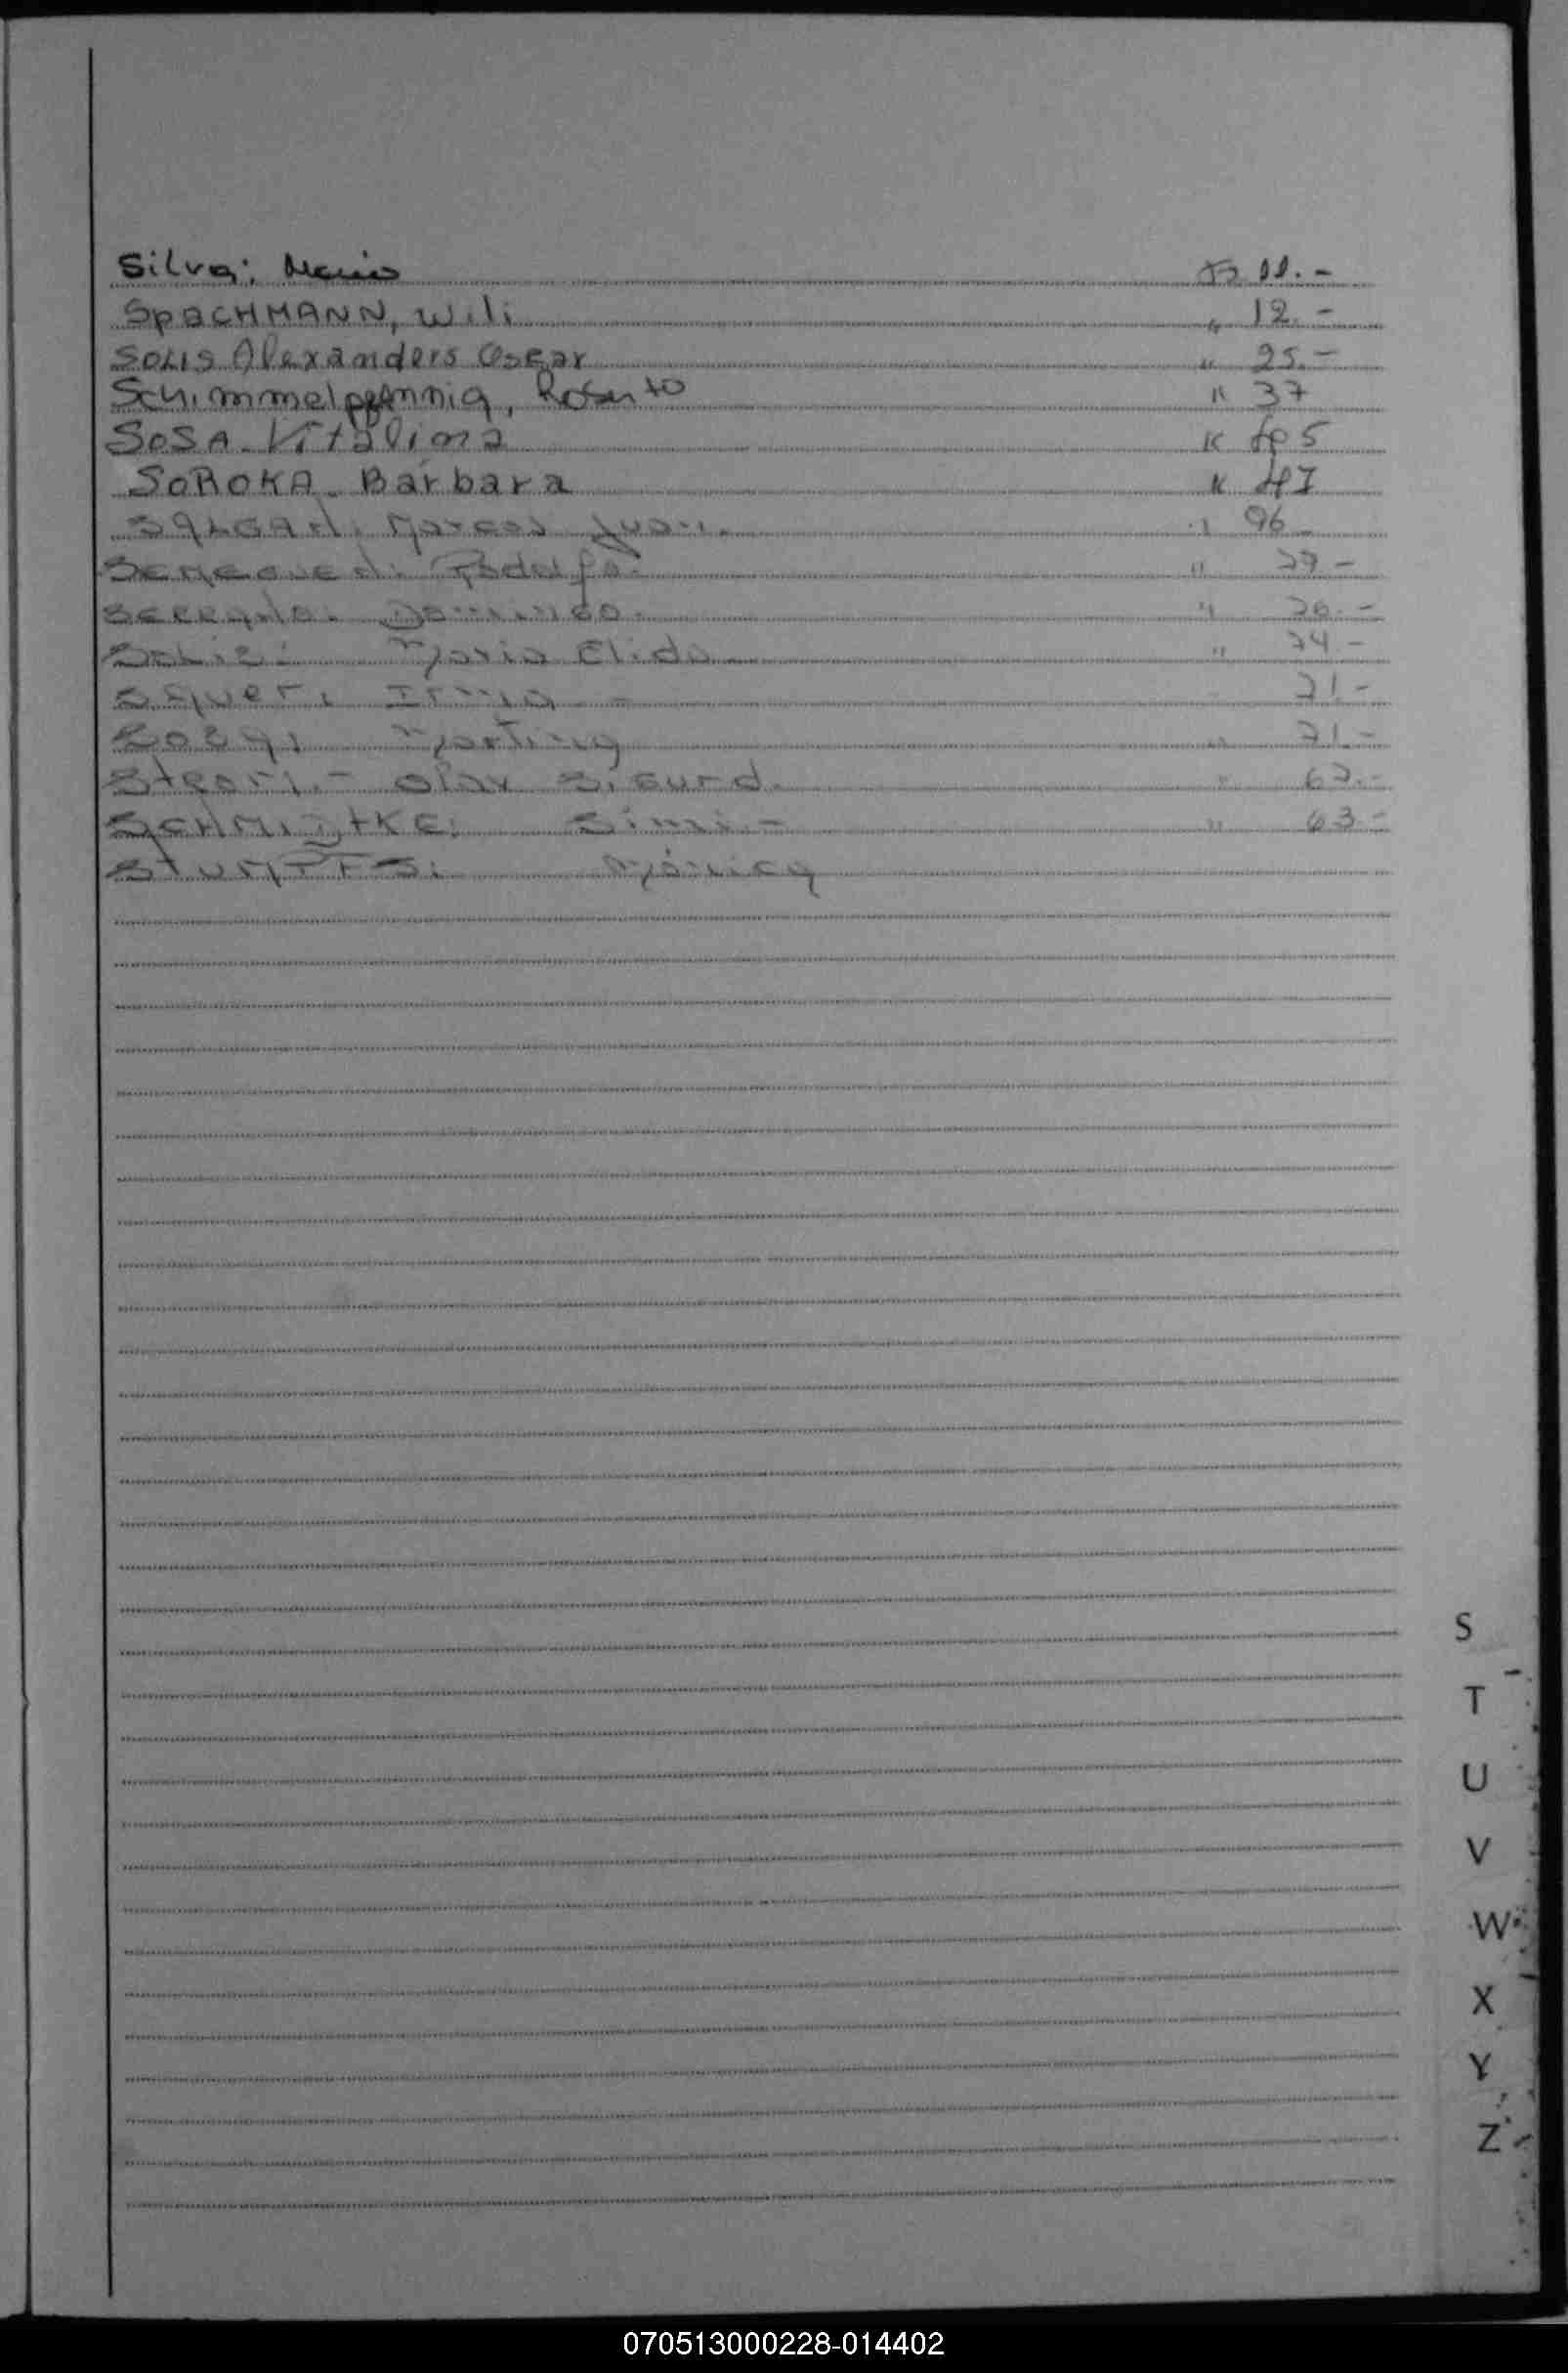 Silva; Mario Fs 11.-
SpACHMANN, Wili " 12.-
SOLIS Alexanders Oscar " 25.-
Schimmelpfennig, Roberto " 37
SOSA Vitalina " 45
SOROKA Bárbara " 47
Marcos Juan.- " 96
Rodolfo.- " 79-
SERRANO: Domingo.- " 76.-
SOLIS: Maria Elida " 74-
Irma - 71-
SOSA; Martina " 71.-
Olav Sigurd. " 67.-
SCHMIDTKE; " 63-
Mónica
S
T
U
V
W
X
Y
Z
070513000228-014402